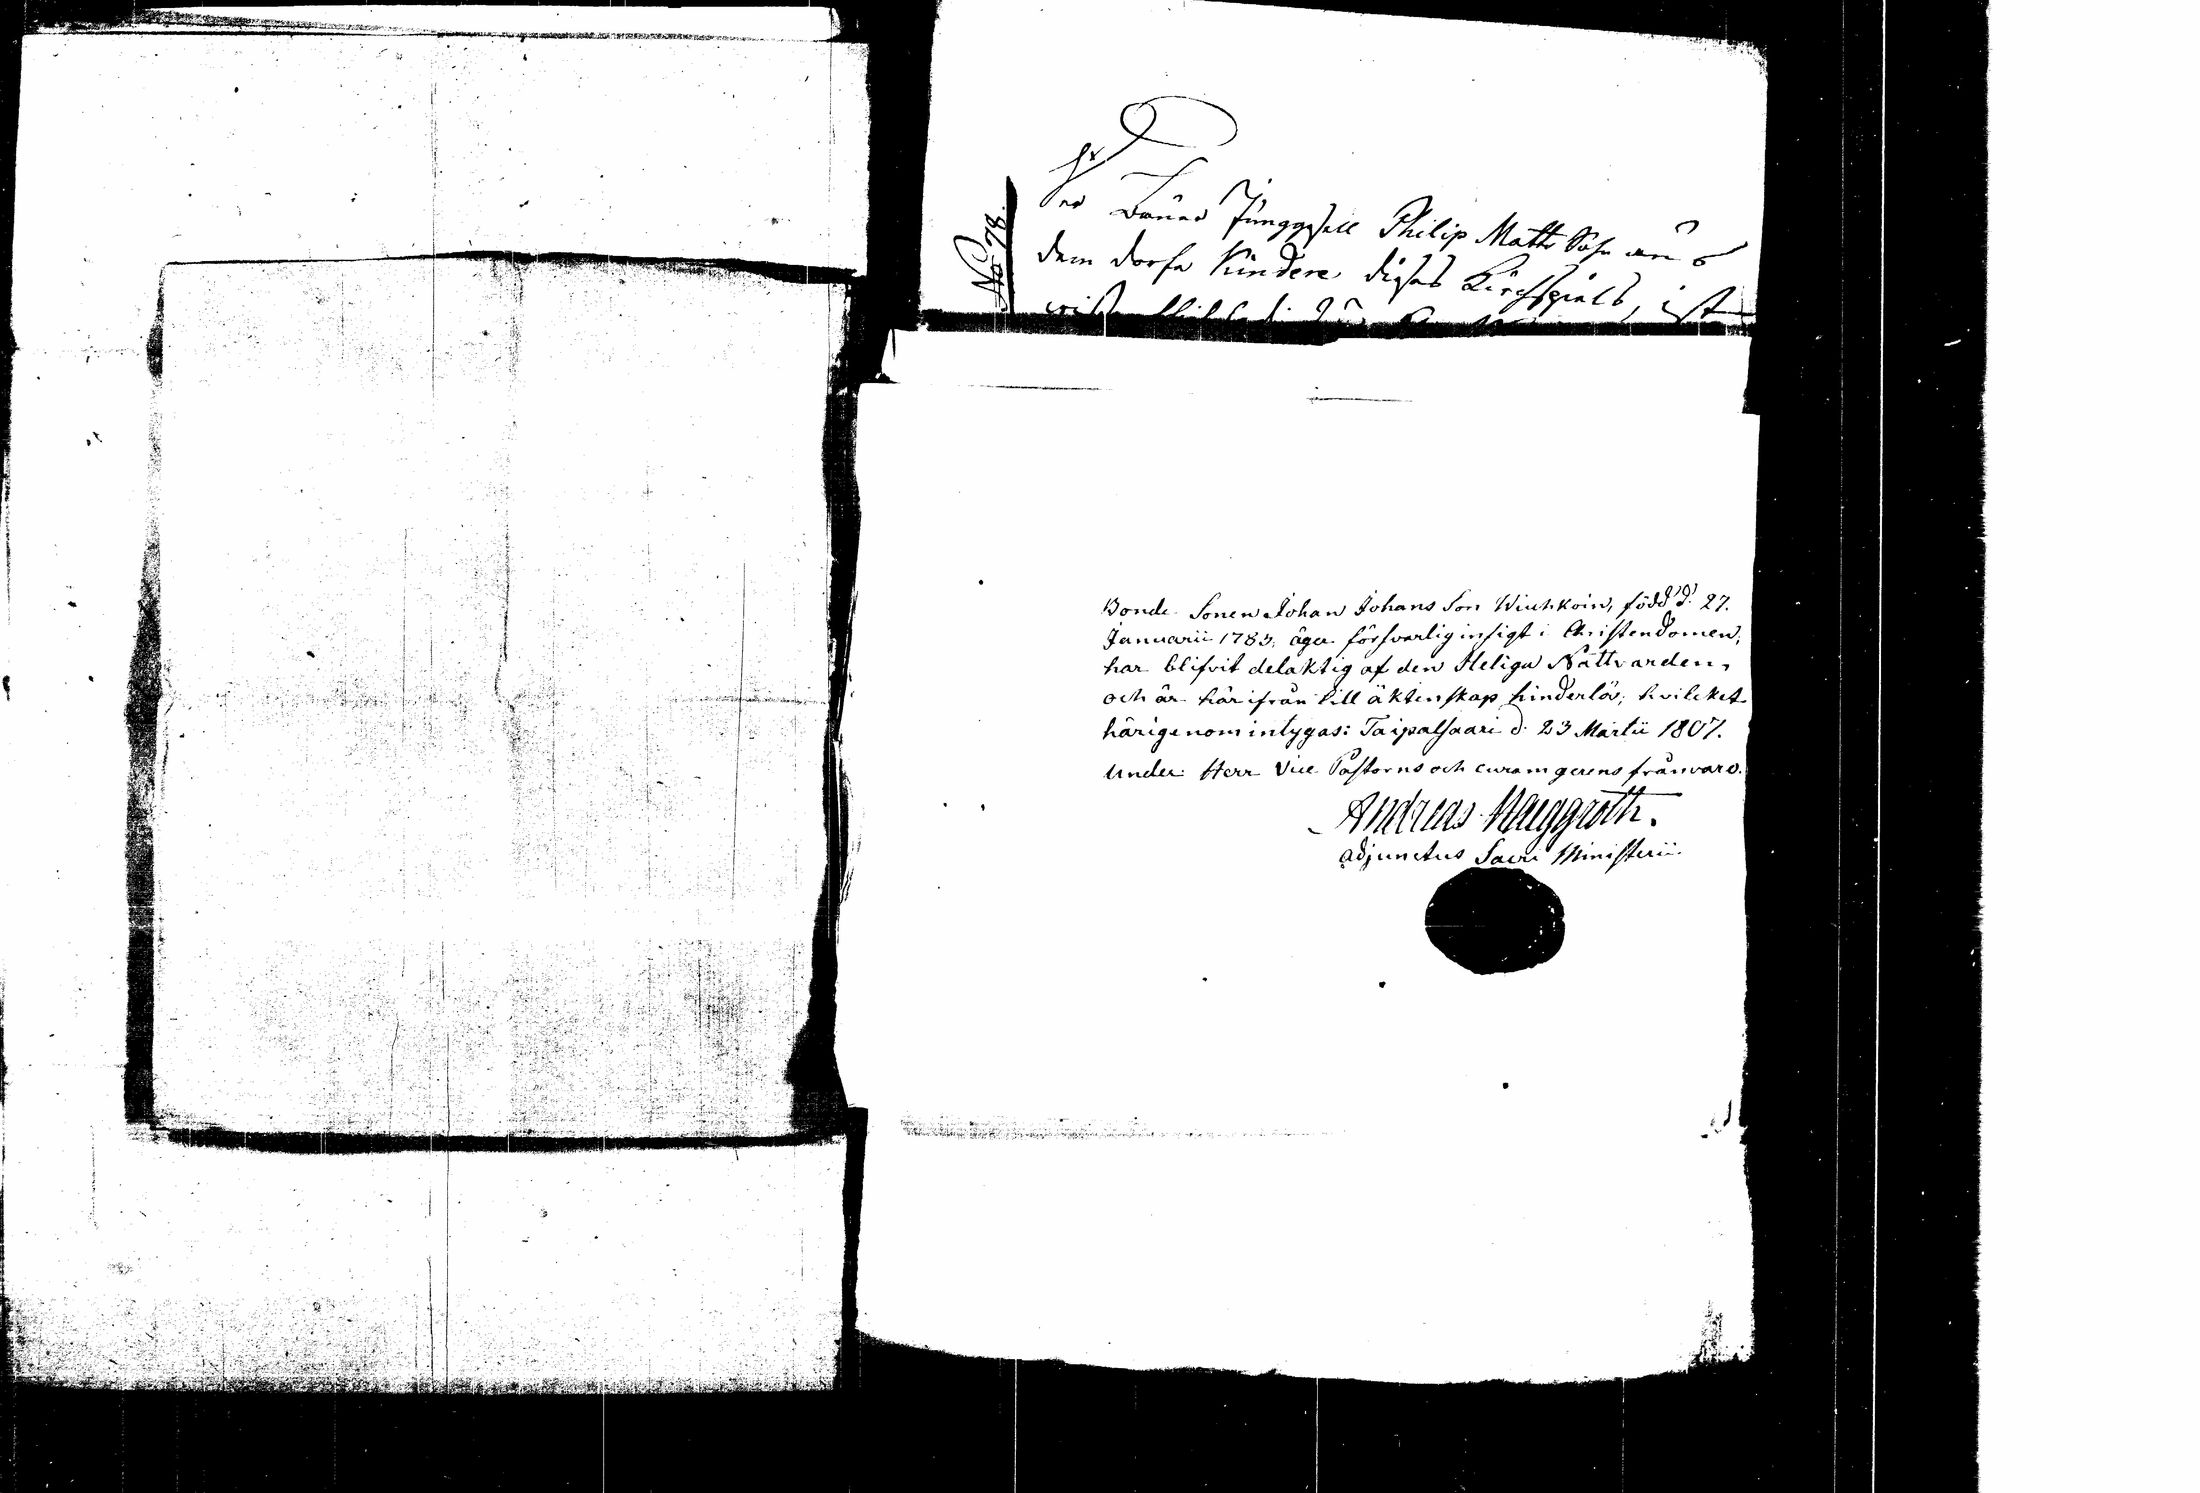 No 78.
Der Bauer Junggesell Philip Matts Sohn aus
dem dorfe Kundere dieses Kirchspiels, ist
Bonde Sonen Johan Johans Son Wiuhkoin, född d. 27.
Januarii 1783, äger försvarlig insigt i Christendomen,
har blifvit delaktig af den Heliga Nattvarden,
och är härifrån till äktenskap hinderlös; hvilcket
härigenom intygas: Taipalsaari d. 23 Martii 1807.
Under Herr Vice Pastorns och curam gerens frånvaro.
Andreas Haeggroth.
adjunctus Sacri Ministerii